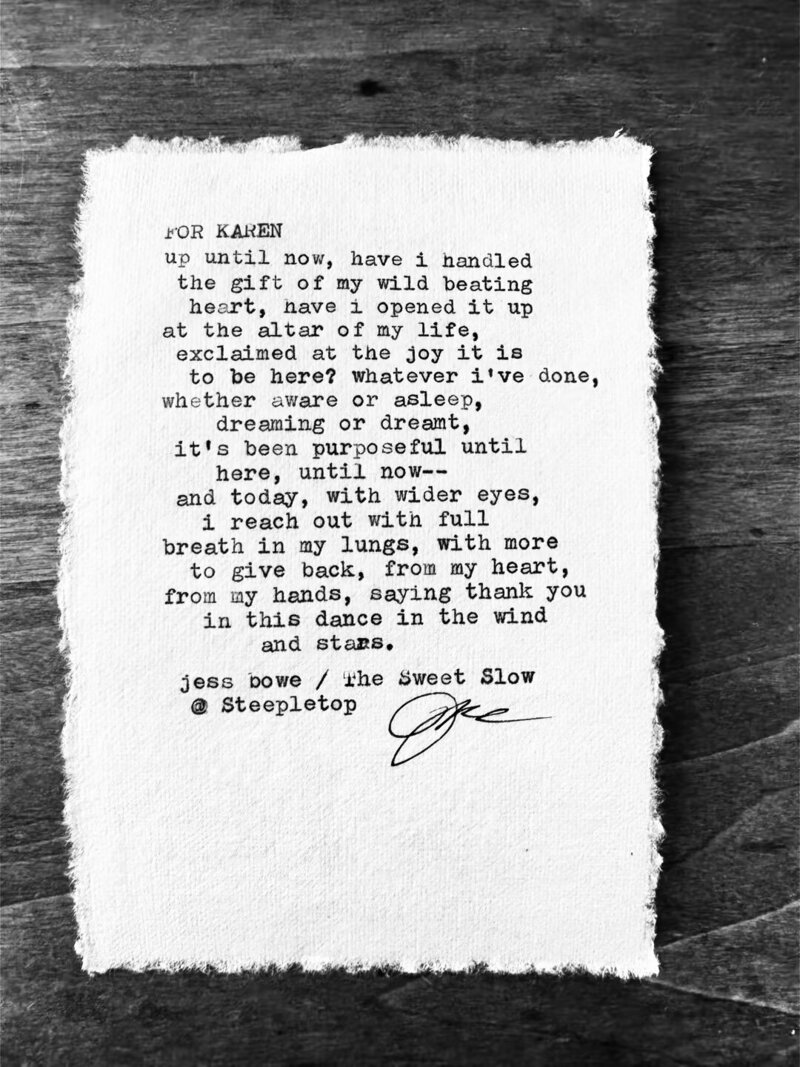 FOR KAREN
up until now, have i handled
the gift of my wild beating
heart, have i opened it up
at the altar of my life,
exclaimed at the joy it is
to be here? whatever i've done,
whether aware or asleep,
dreaming or dreamt,
it's been purposeful until
here, until now--
and today, with wider eyes,
i reach out with full
breath in my lungs, with more
to give back, from my heart,
from my hands, saying thank you
in this dance in the wind
and stars.
jess bowe / The Sweet Slow
@ Steepletop